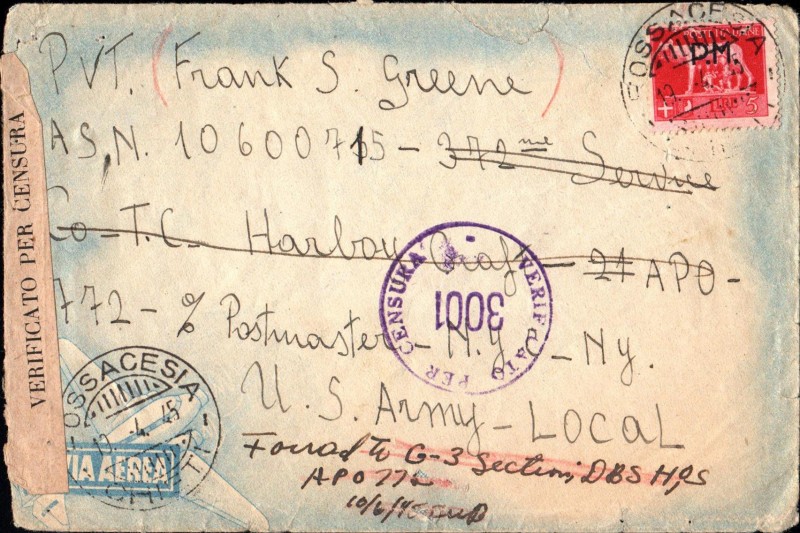 PVT. (Frank S. Greene)
ASN. 10600715 - 372nd Service
Co - T.C. Harbor Craft - 21 APO -
772 - % Postmaster - N.Y. - Ny.
U. S. Army - LOCAL
Forrad to G-3 Section, DBS Hqs
APO 772
10/6/45
VERIFICATO PER CENSURA
VERIFICATO PER CENSURA
3001
FOSSACESIA
P.M.
LIRE 5
FOSSACESIA
12 . 4. 45
CHIETI
VIA AEREA